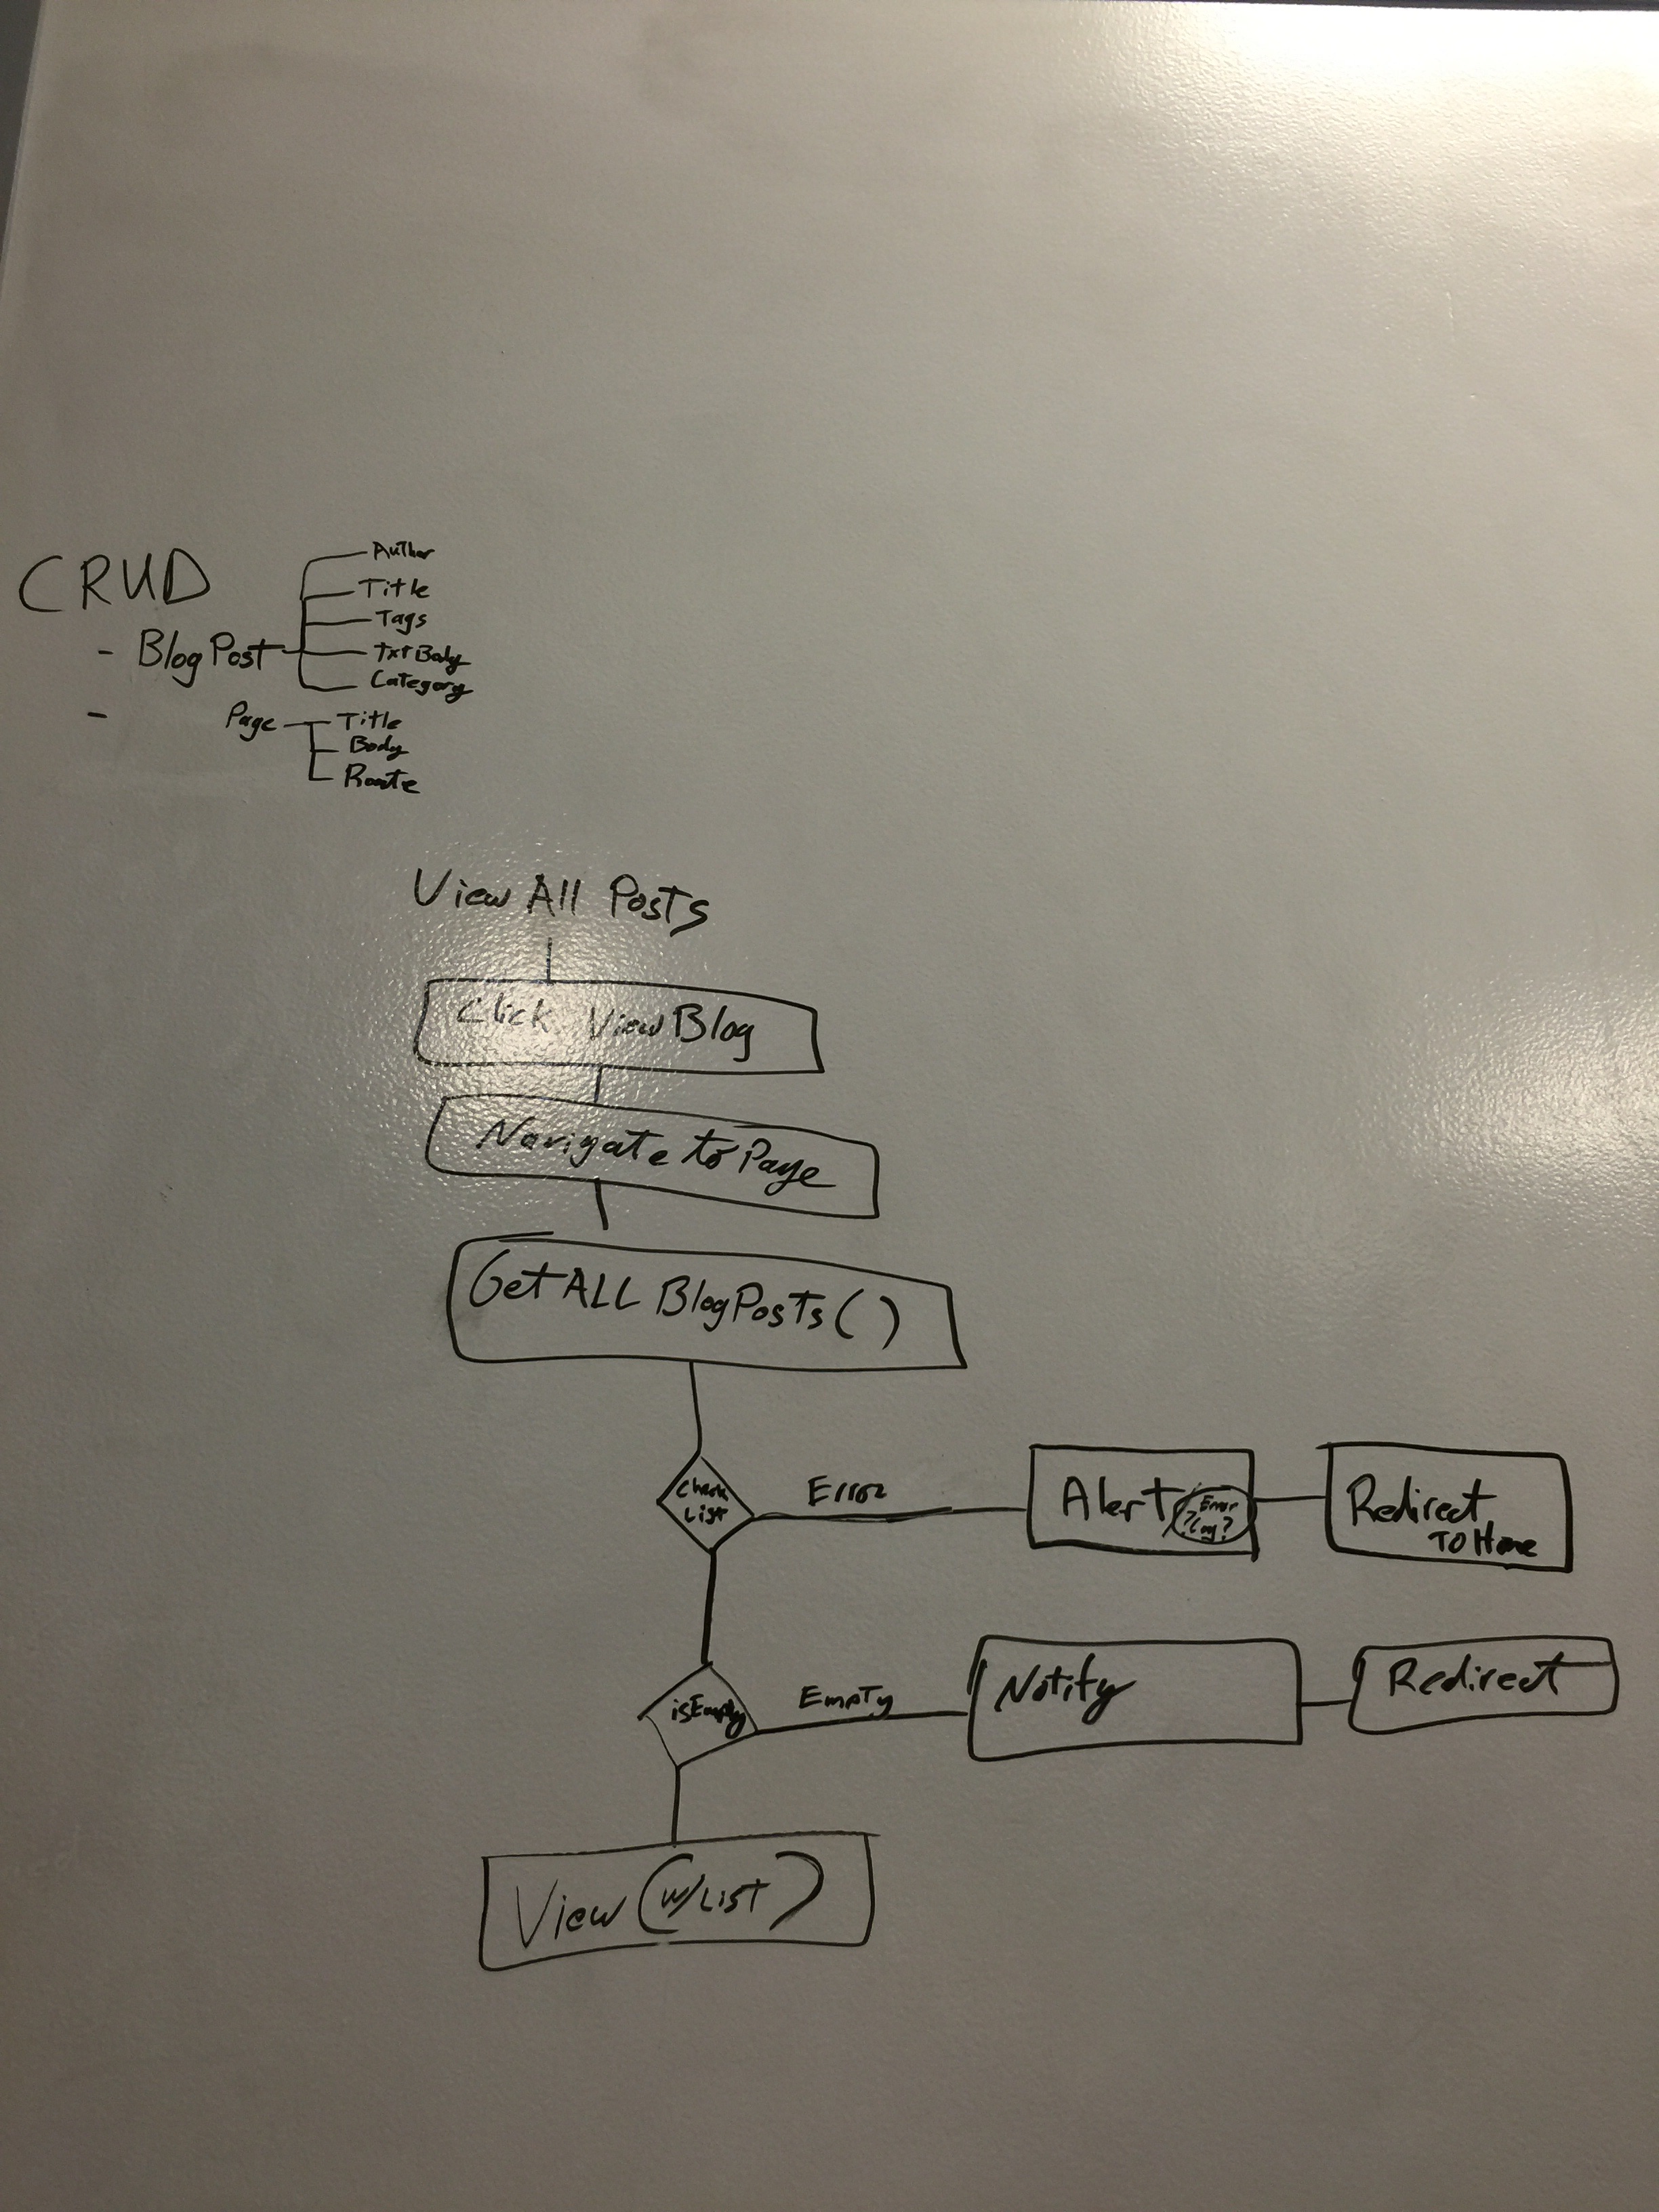 CRUD
- Blog Post
Author
Title
Tags
Txt Body
Category
-
Page
Title
Body
Route
View All Posts
Click View Blog
Navigate to Page
Get ALL BlogPosts()
Check
List
Error
Alert
Error
?Log?
Redirect
To Home
isEmpty
Empty
Notify
Redirect
View (w/List)